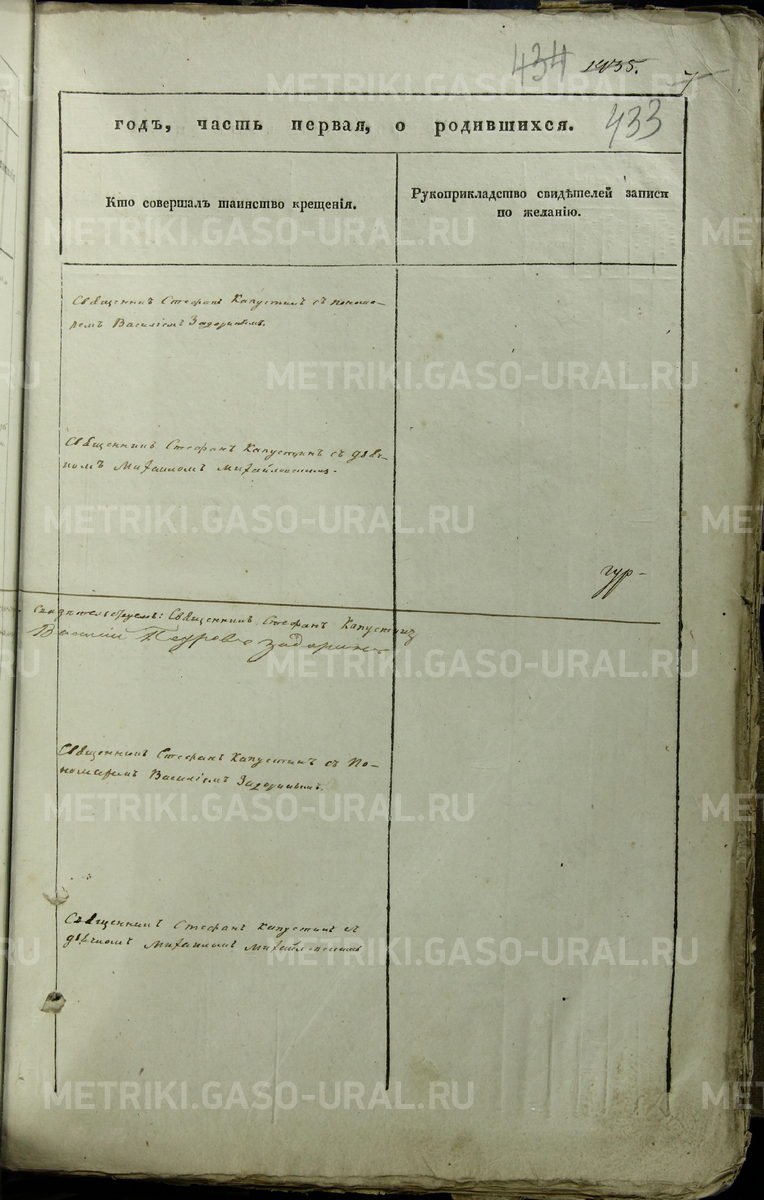 434 1835. 7
годъ, часть первая, о родившихся. 433
Кто совершалъ таинство крещенія.
Рукоприкладство свидѣтелей записи по желанію.
Священникъ Стефанъ Капустинъ съ понома-
ремъ Василіемъ Задоринымъ.
Священникъ Стефанъ Капустинъ съ дьяч-
комъ Михаиломъ Михайловскимъ.
гур-
Свидѣтельствуемъ: Священникъ Стефанъ Капустинъ
Василій Задоринъ
Священникъ Стефанъ Капустинъ съ По-
номаремъ Василіемъ Задоринымъ.
Священникъ Стефанъ Капустинъ съ
дьячкомъ Михаиломъ Михайловскимъ
METRIKI.GASO-URAL.RU